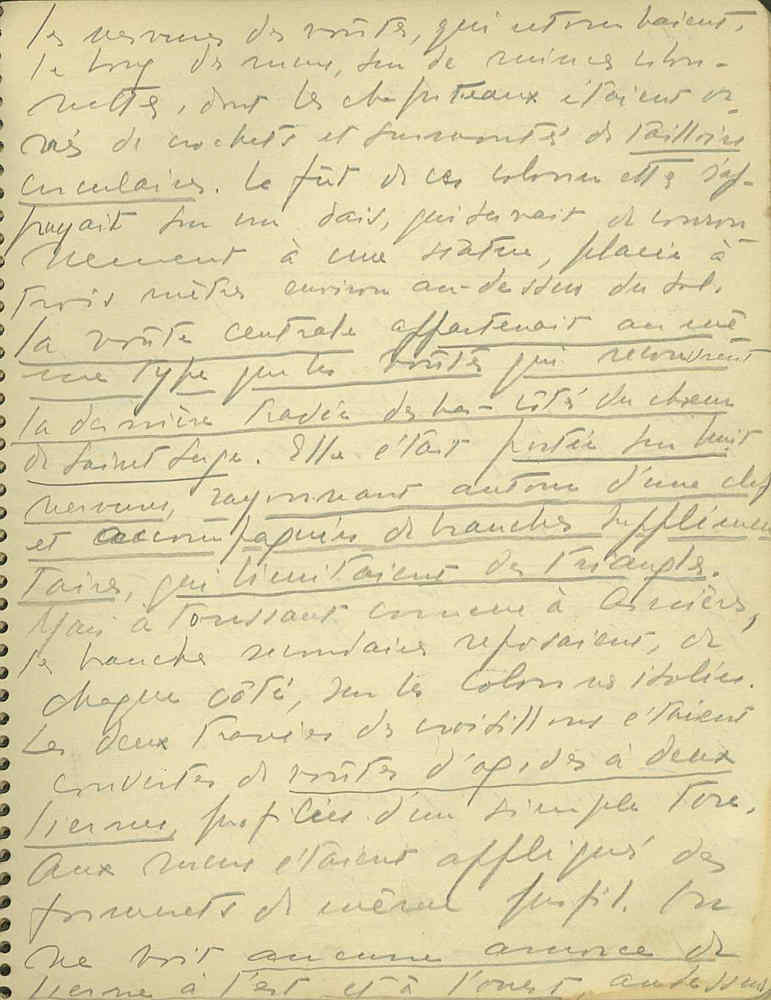 les nervures des voûtes, qui retombaient,
le long des murs, sur de minces colon-
nettes, dont les chapiteaux étaient or-
nés de crochets et surmontés de tailloirs
circulaires. Le fût de ces colonnettes s'ap-
puyait sur un dais, qui servait de couron
nement à une statue, placée à
trois mètres environ au-dessus du sol.
La voûte centrale appartenait au mê
me type que les voûtes qui recouvrent
la dernière travée des bas-côtés du chœur
de Saint Serge. Elle était portée sur huit
nervures, rayonnant autour d'une clef
et accompagnées de branches supplémen
taires, qui limitaient des triangles.
Mais à Toussaint comme à Asnières,
les branches secondaires reposaient, de
chaque côté, sur les colonnes isolées.
Les deux travées des croisillons étaient
couvertes de voûtes d'ogives à deux
liernes, profilées d'un simple tore.
Aux murs étaient appliqués des
formerets de même profil. On
ne voit aucune amorce de
lierne à l'est et à l'ouest, au dessus